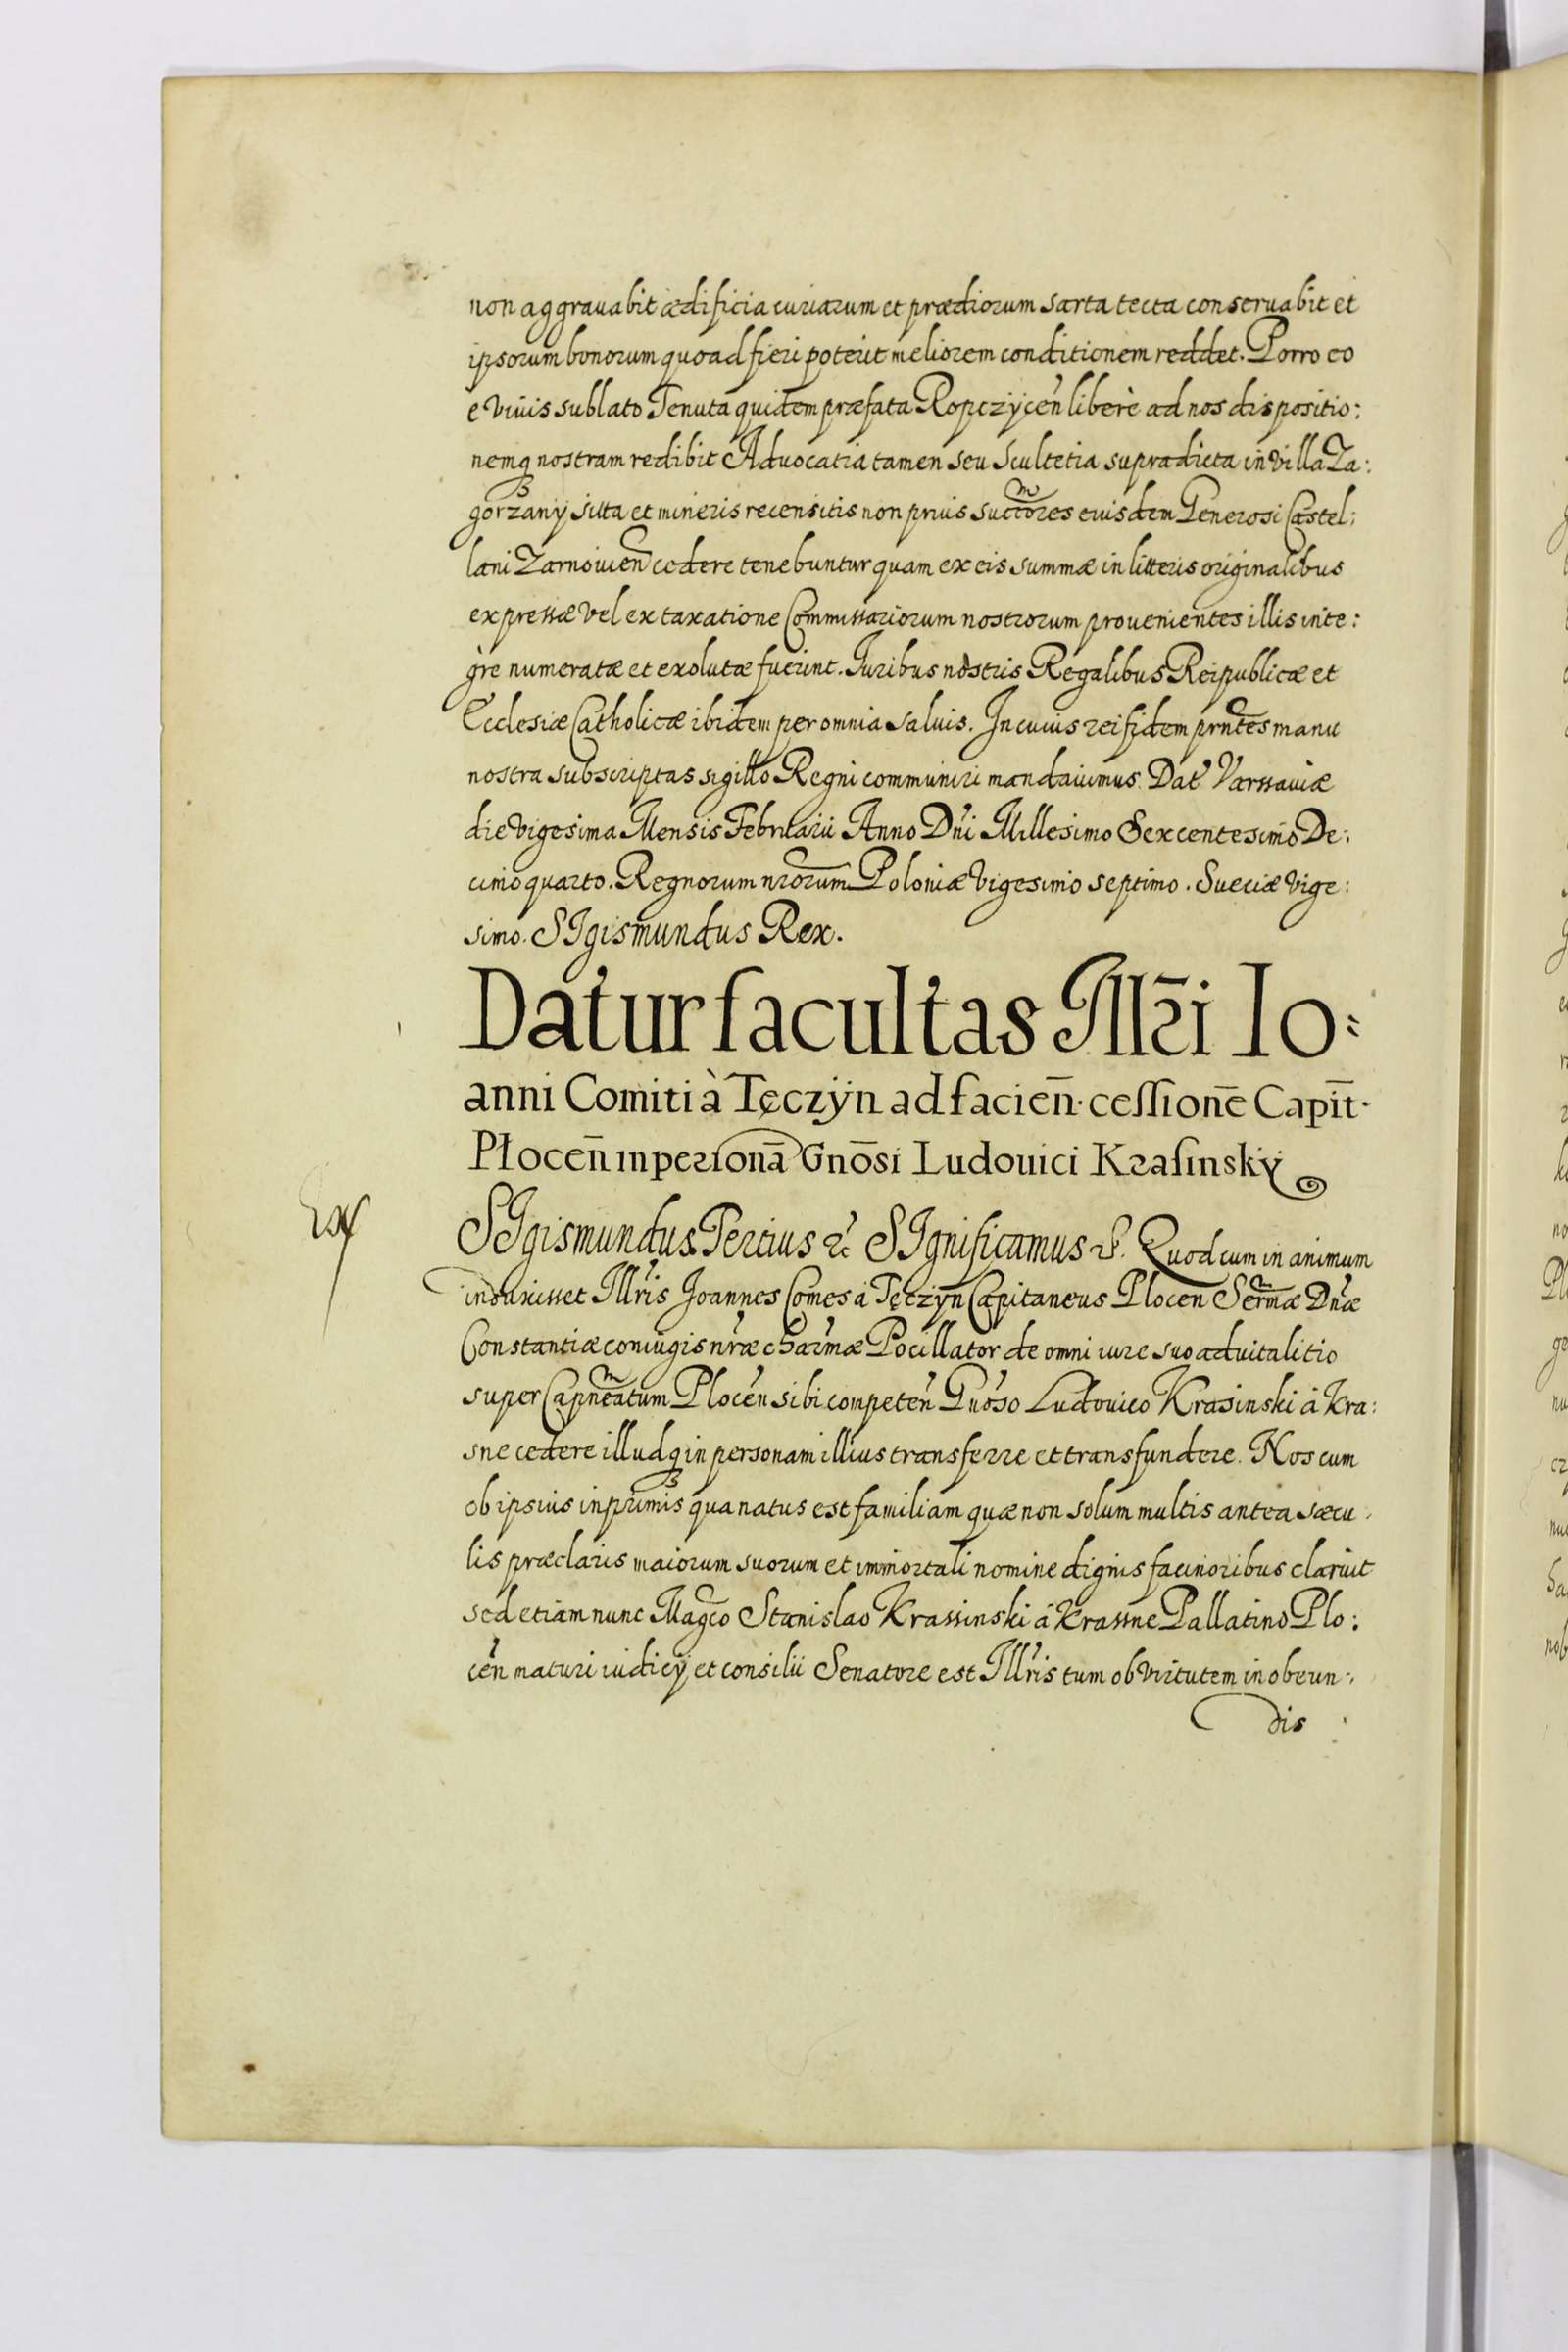 non aggrauabit ædificia curiarum et prædiorum sarta tecta conseruabit et
ipsorum bonorum quoad fieri poterit meliorem conditionem reddet. Porro eo
e viuis sublato Tenuta quidem præfata Ropczÿceń liberè ad nos dispositio:
nemq nostram redibit Aduocatia tamen seu Scultetia supradicta in villa Za:
gorzany sitta et mineris recensitis non prius succores eiusdem Generosi Castel:
lani Zarnouien cedere tenebuntur quam ex eis summæ in litteris originalibus
expressæ vel ex taxatione Commissariorum nostrorum prouenientes illis inte:
gre numeratæ et exolutæ fuerint. Iuribus nostris Regalibus Reipublicæ et
Ecclesiæ Catholicæ ibidem per omnia saluis. In cuius rei fidem prntes manu
nostra subscriptas sigillo Regni communiri mandauimus. Dat Varssauiæ
die vigesima Mensis Februarii Anno Dńi Millesimo Sexcentesimo De:
cimo quarto. Regnorum nrorum Poloniæ vigesimo septimo. Sueciæ vige:
simo. SIgismundus Rex.
Datur facultas Illri Io:
anni Comiti à Tęczÿn ad facien̄. cessionē Capit̄.
Płocen̄ in personā Gnōsi Ludouici Krasinskÿ
Ex
SIgismundus Tertius &c SIgnificamus &. Quod cum in animum
induxisset Illris Joannes Comes à Tęczÿn Capitaneus Plocen Sermæ Dnæ
Constantiæ coniugis nræ charmæ Pocillator de omni iure suo aduitalitio
super Capneatum Plocen sibi competeń Gnoso Ludouico Krasinski á Kra:
sne cedere illudq in personam illius transferre et transfundere. Nos cum
ob ipsius inprimis qua natus est familiam quæ non solum multis antea sæcu.
lis præclaris maiorum suorum et immortali nomine dignis facinoribus claruit
sed etiam nunc Magco Stanislao Krassinski á Krassne Pallatino Plo:
ceń maturi iudicÿ et consilii Senatore est Illris tum ob virtutem in obeun.
dis